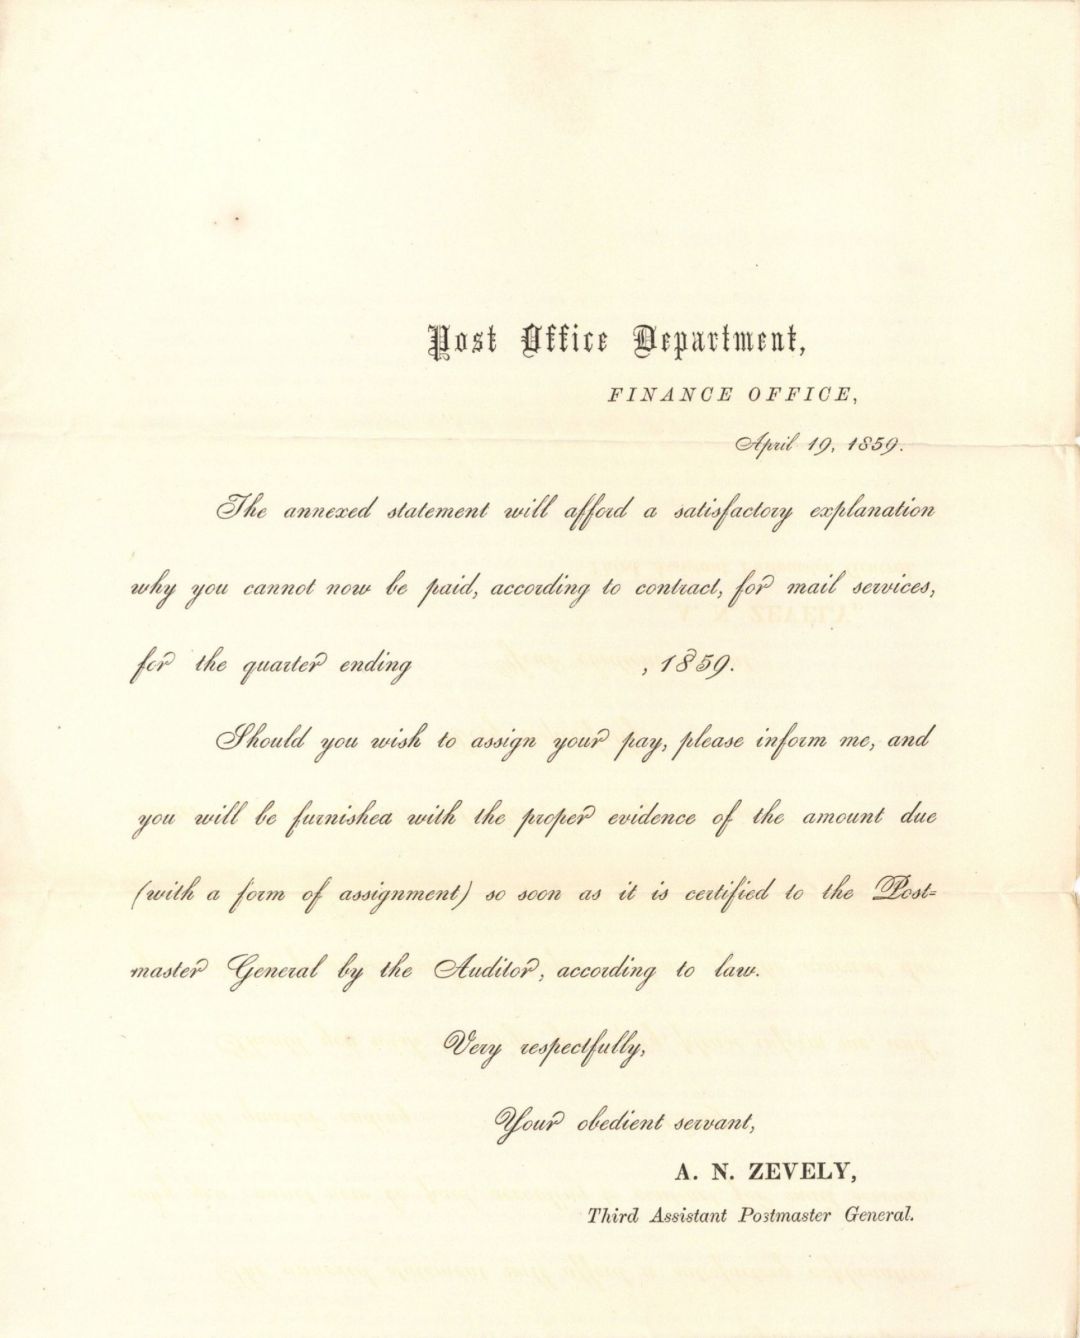 Post Office Department,
FINANCE OFFICE,
April 19, 1859.
The annexed statement will afford a satisfactory explanation
why you cannot now be paid, according to contract, for mail services,
for the quarter ending , 1859.
Should you wish to assign your pay, please inform me, and
you will be furnished with the proper evidence of the amount due
(with a form of assignment) so soon as it is certified to the Post-
master General by the Auditor, according to law.
Very respectfully,
Your obedient servant,
A. N. ZEVELY,
Third Assistant Postmaster General.